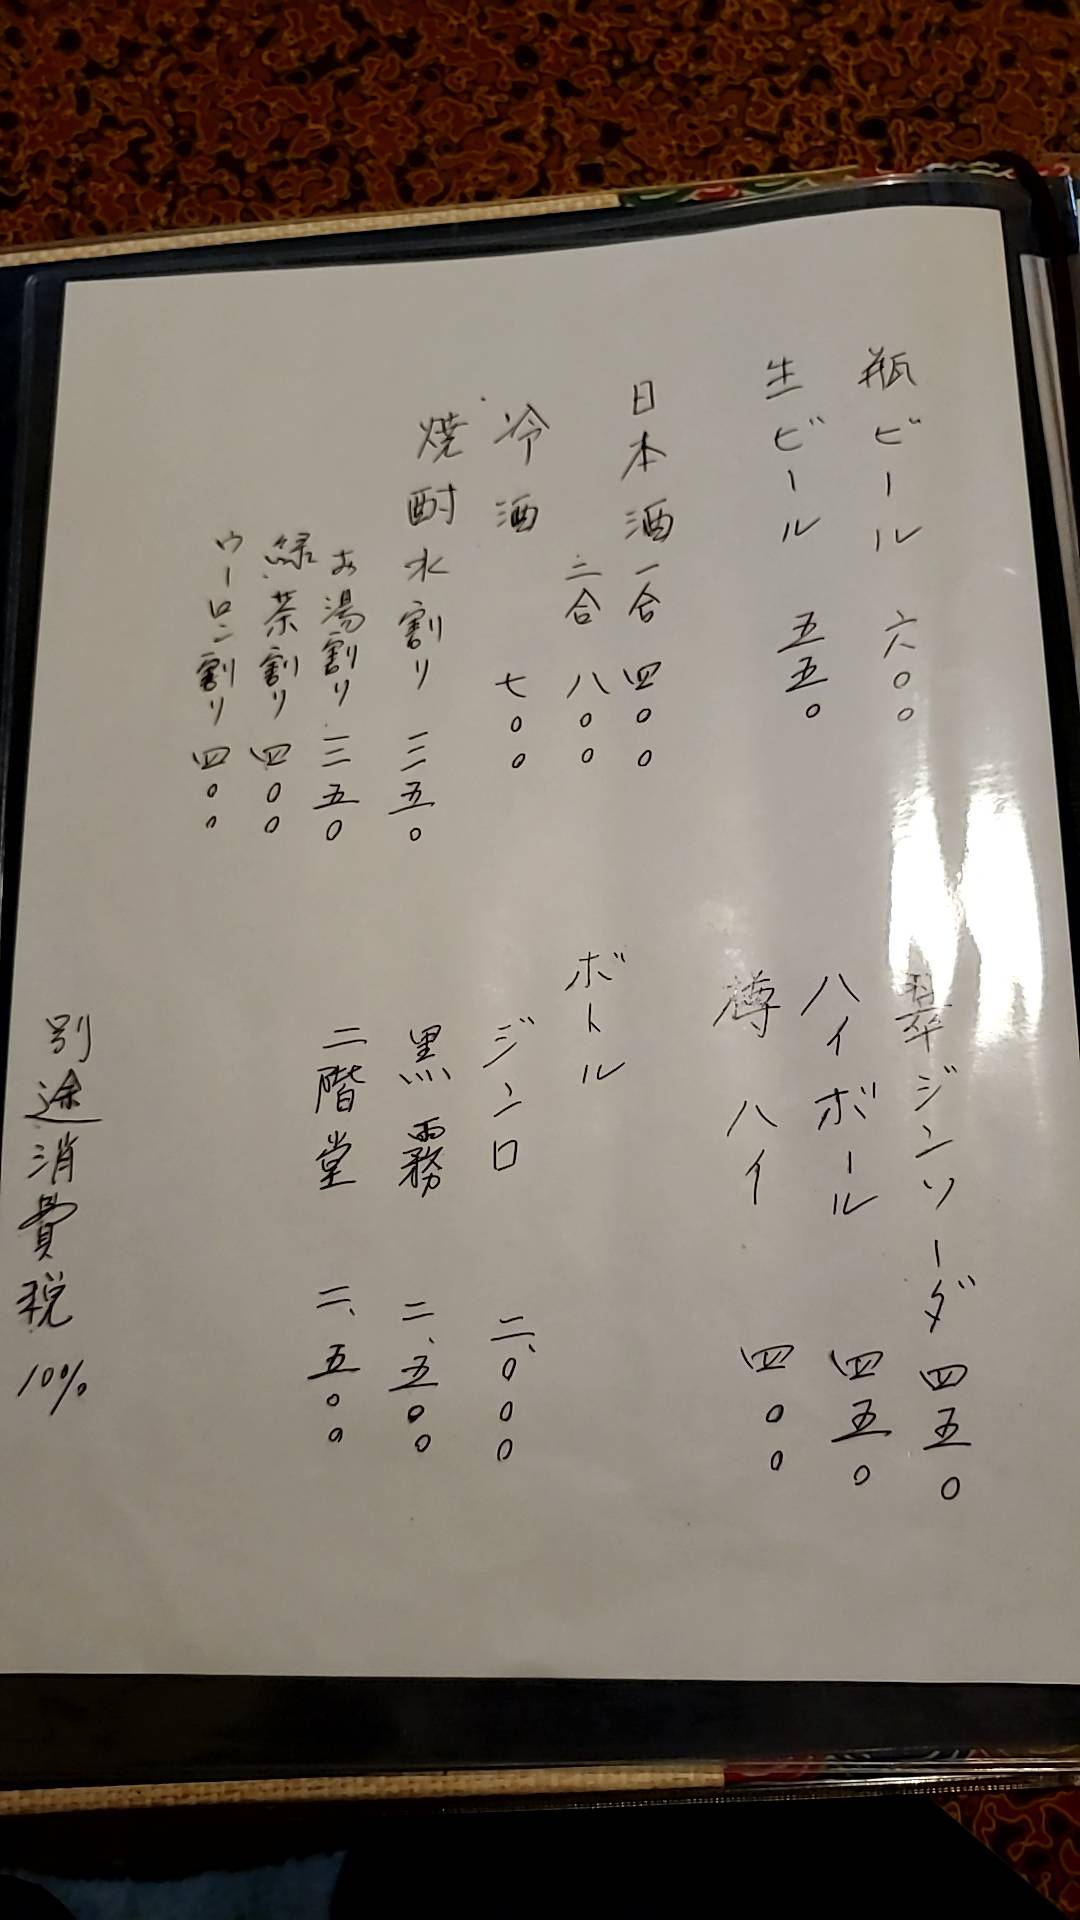 瓶ビール 六〇〇
生ビール 五五〇
日本酒 一合 四〇〇
二合 八〇〇
冷酒 七〇〇
焼酎 水割り 三五〇
お湯割り 三五〇
緑茶割り 四〇〇
ウーロン割り 四〇〇
翠ジンソーダ 四五〇
ハイボール 四五〇
樽ハイ 四〇〇
ボトル
ジンロ 二、〇〇〇
黒霧 二、五〇〇
二階堂 二、五〇〇
別途消費税10%